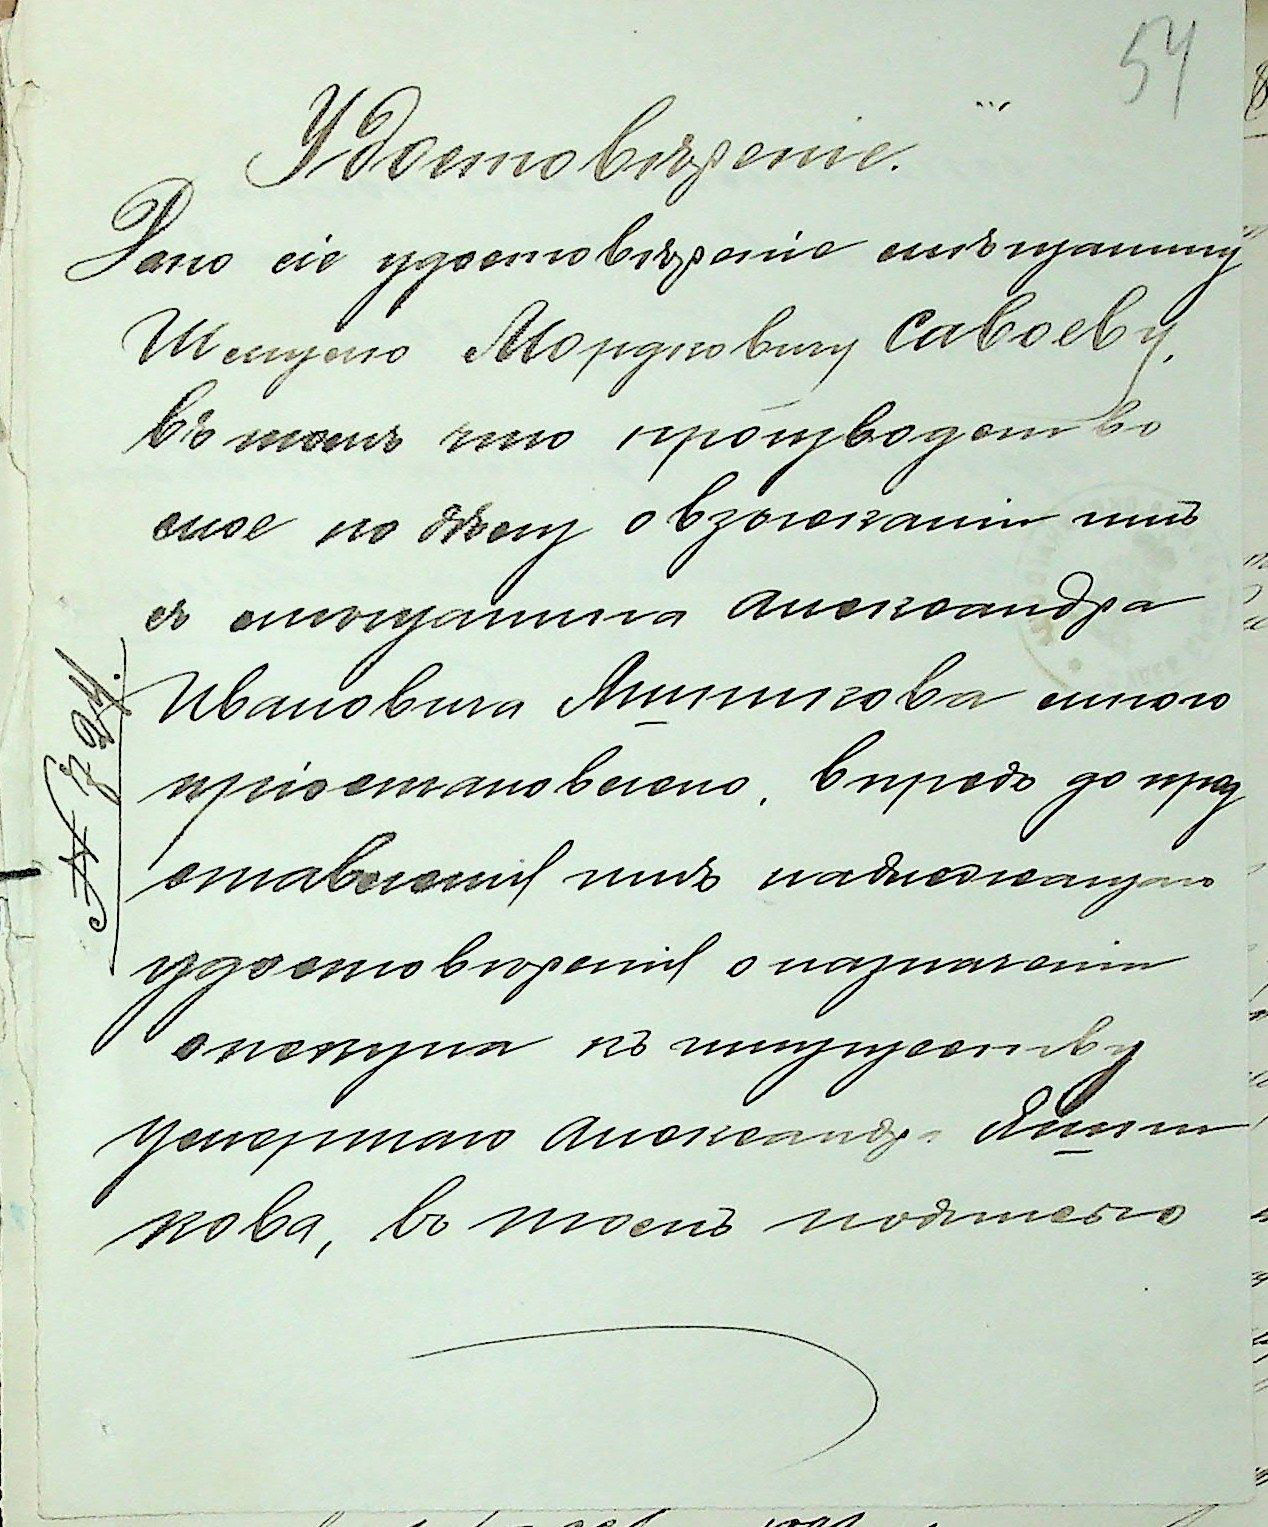 54
Удостовѣреніе.
Дано сіе удостовѣреніе мѣщанину
Мордковичу Савоеву,
въ томъ что производство
мое по дѣлу о взысканіи имъ
съ мѣщанина Александра
Ивановича Яшникова мною
пріостановлено, впредь до пред
ставленія имъ надлежащаго
удостовѣренія о назначеніи
опекуна къ имуществу
умершаго Александра Яшни
кова, въ томъ подписью
№ 724.